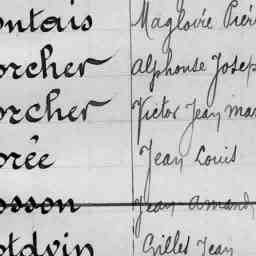 ontais Magloire Pier
orcher Alphonse Josep
orcher Victor Jean Mar
orée Jean Louis
osson Jean Amand
otdvin Gilles Jean